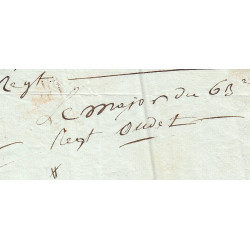 Regt
Le major du 63e
Regt Oudet